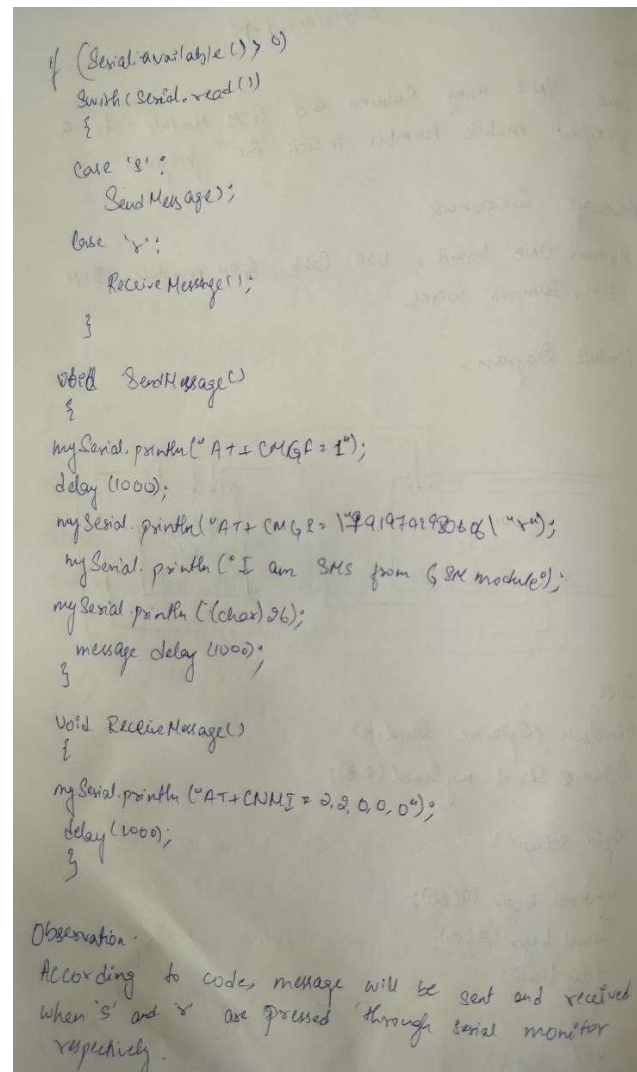 if (Serial.available() > 0)
Swith(Serial.read())
{
Case 's':
SendMessage);
Case 'r':
ReceiveMessage();
}
void SendMessage()
{
mySerial.println("AT+ CMGF = 1");
delay (1000);
mySerial.println("AT+ CMGS=
mySerial.println("I am SMS from GSM module");
mySerial.println ((char)26);
message delay (1000);
}
void ReceiveMessage()
{
mySerial.println ("AT+CNMI = 2,2,0,0,0");
delay (1000);
}
Observation.
According to code, message will be sent and received
when 's' and 'r' are pressed through serial monitor
respectively.